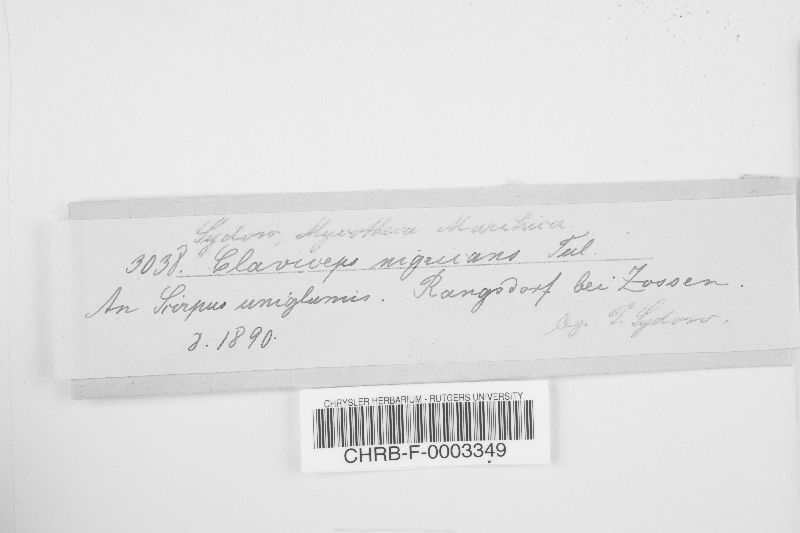 Sydow, Mycotheca Marchica
3038. Claviceps nigricans Tul.
An Scirpus uniglumis. Rangsdorf bei Zossen.
leg. P. Sydow.
8. 1890.
CHRYSLER HERBARIUM - RUTGERS UNIVERSITY
CHRB-F-0003349